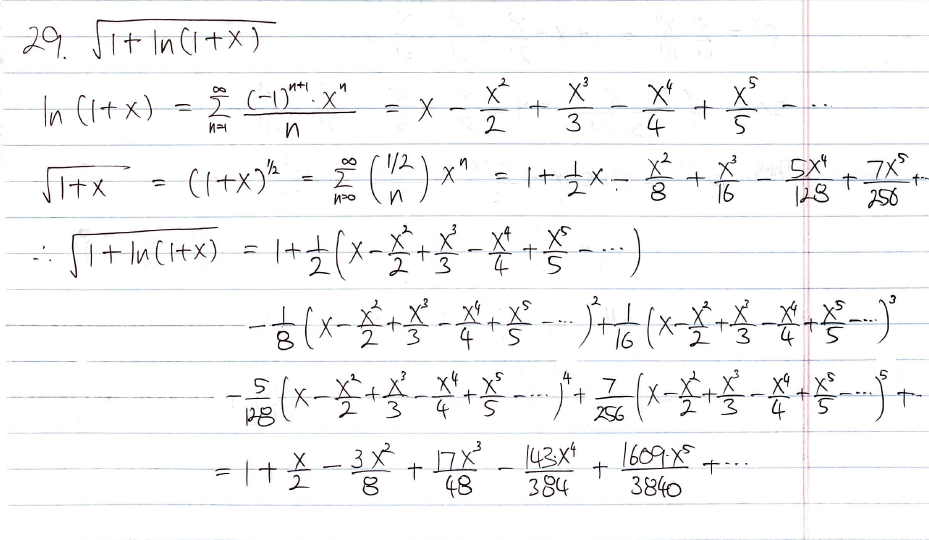 29. √(1+ln(1+x))
ln(1+x) = ∑_{n=1}^{∞} ((-1)^{n+1}·x^n)/n = x - x²/2 + x³/3 - x⁴/4 + x⁵/5 - ...
√(1+x) = (1+x)^{1/2} = ∑_{n=0}^{∞} (1/2 n) x^n = 1 + 1/2 x - x²/8 + x³/16 - 5x⁴/128 + 7x⁵/256 + ...
∴ √(1+ln(1+x)) = 1 + 1/2 (x - x²/2 + x³/3 - x⁴/4 + x⁵/5 - ...)
- 1/8 (x - x²/2 + x³/3 - x⁴/4 + x⁵/5 - ...)² + 1/16 (x - x²/2 + x³/3 - x⁴/4 + x⁵/5 - ...)³
- 5/128 (x - x²/2 + x³/3 - x⁴/4 + x⁵/5 - ...)⁴ + 7/256 (x - x²/2 + x³/3 - x⁴/4 + x⁵/5 - ...)⁵ + ...
= 1 + x/2 - 3x²/8 + 17x³/48 - 143·x⁴/384 + 1609·x⁵/3840 + ...